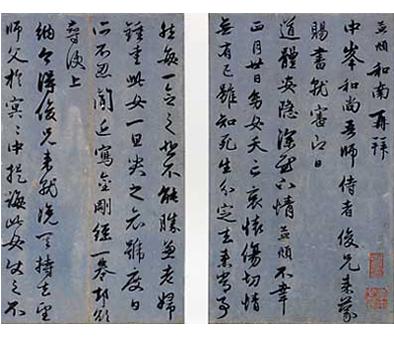 孟頫和南再拜
中峯和尚吾師侍者俊兄來蒙
賜書就審即日
道體安隱深慰下情孟頫不幸
正月廿日幼女夭亡哀懷傷切情
無有已雖知死生分定去來常事
然每一念之悲不能勝兼老婦
鍾愛此女一旦哭之哀號度日
所不忍聞近寫金剛經一卷却欲
尋便上
納今得俊兄來就浼其持去望
師父於冥冥中提誨此女使之不